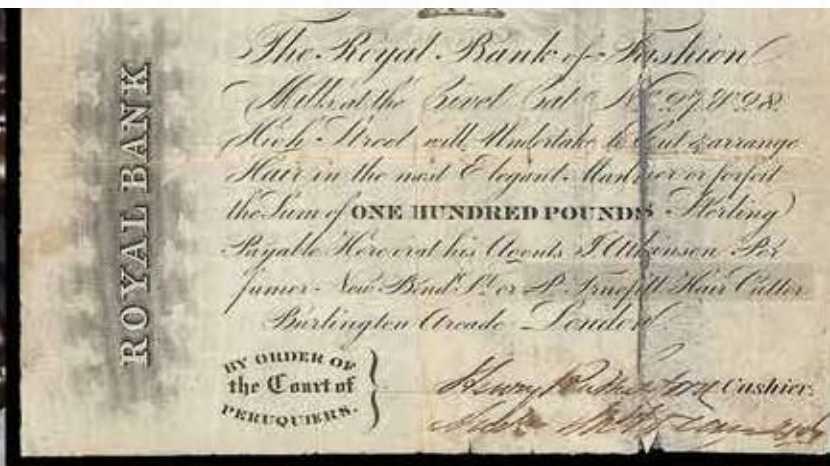 ROYAL BANK
The Royal Bank of Fashion
Mills at the Civet Cat Nos. 97, & 98.
High-Street will Undertake to Cut & arrange
Hair in the most Elegant Manner or forfeit
the Sum of ONE HUNDRED POUNDS Sterling
Payable Here or at his Agents J. Atkinson Per
fumer New Bond St. or P. Truefitt Hair Cutter
Burlington Arcade London
BY ORDER OF
the Court of
PERUQUIERS.
Henry Cashier.